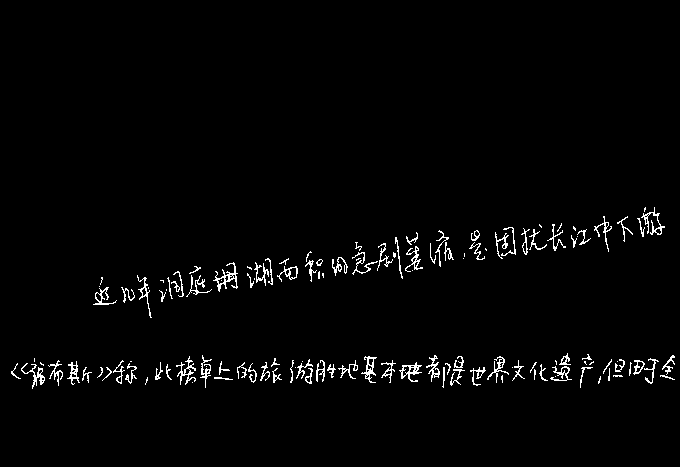 近几年洞庭湖湖面积的急剧萎缩,是困扰长江中下游
《福布斯》称,此榜单上的旅游胜地基本地都是世界文化遗产,但由于全